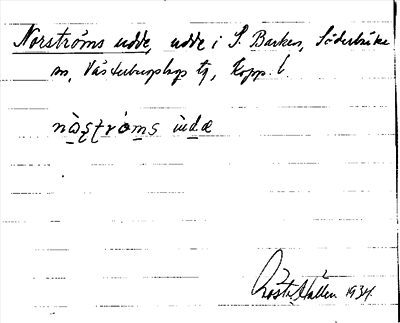 Norströms udde, udde i S. Barken, Söderbärke
sn, Västerbergslags tg, Kopp. l.
nòʂʈròms ùdæ
Gösta Hallén 1934.